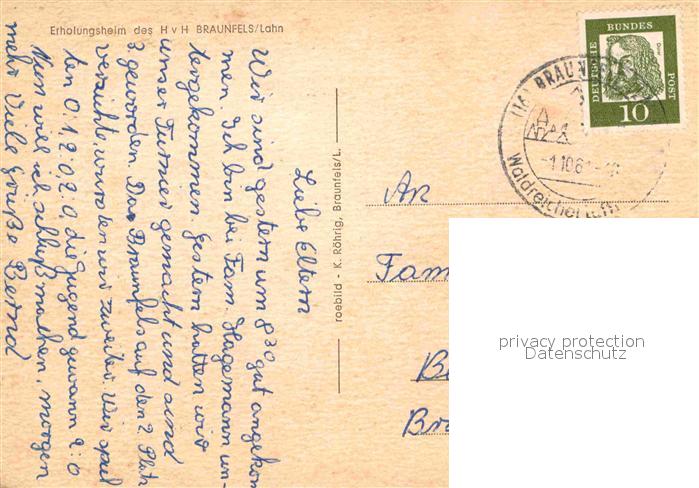 Erholungsheim des H v H BRAUNFELS/Lahn
Liebe Eltern
Wir sind gestern um 8³⁰ gut angekom
men. Ich bin bei Fam. Hagemann un-
tergekommen. Gestern hatten wir
unser Turnier gemacht und sind
3. geworden. Da Braunfels auf den 2. Platz
verzichtet, wurden wir zweiter. Wir spiel
ten 0:1 0:2 0:0 die Jugend gewann 2:0
Nun will ich schluß machen, morgen
mehr Viele Grüße Bernd
roebild - K. Röhrig, Braunfels/L.
DEUTSCHE
BUNDES
POST
10
BRAUN
1.10.6
Waldreicher Luft
An
Fam
B
Br
privacy protection
Datenschutz